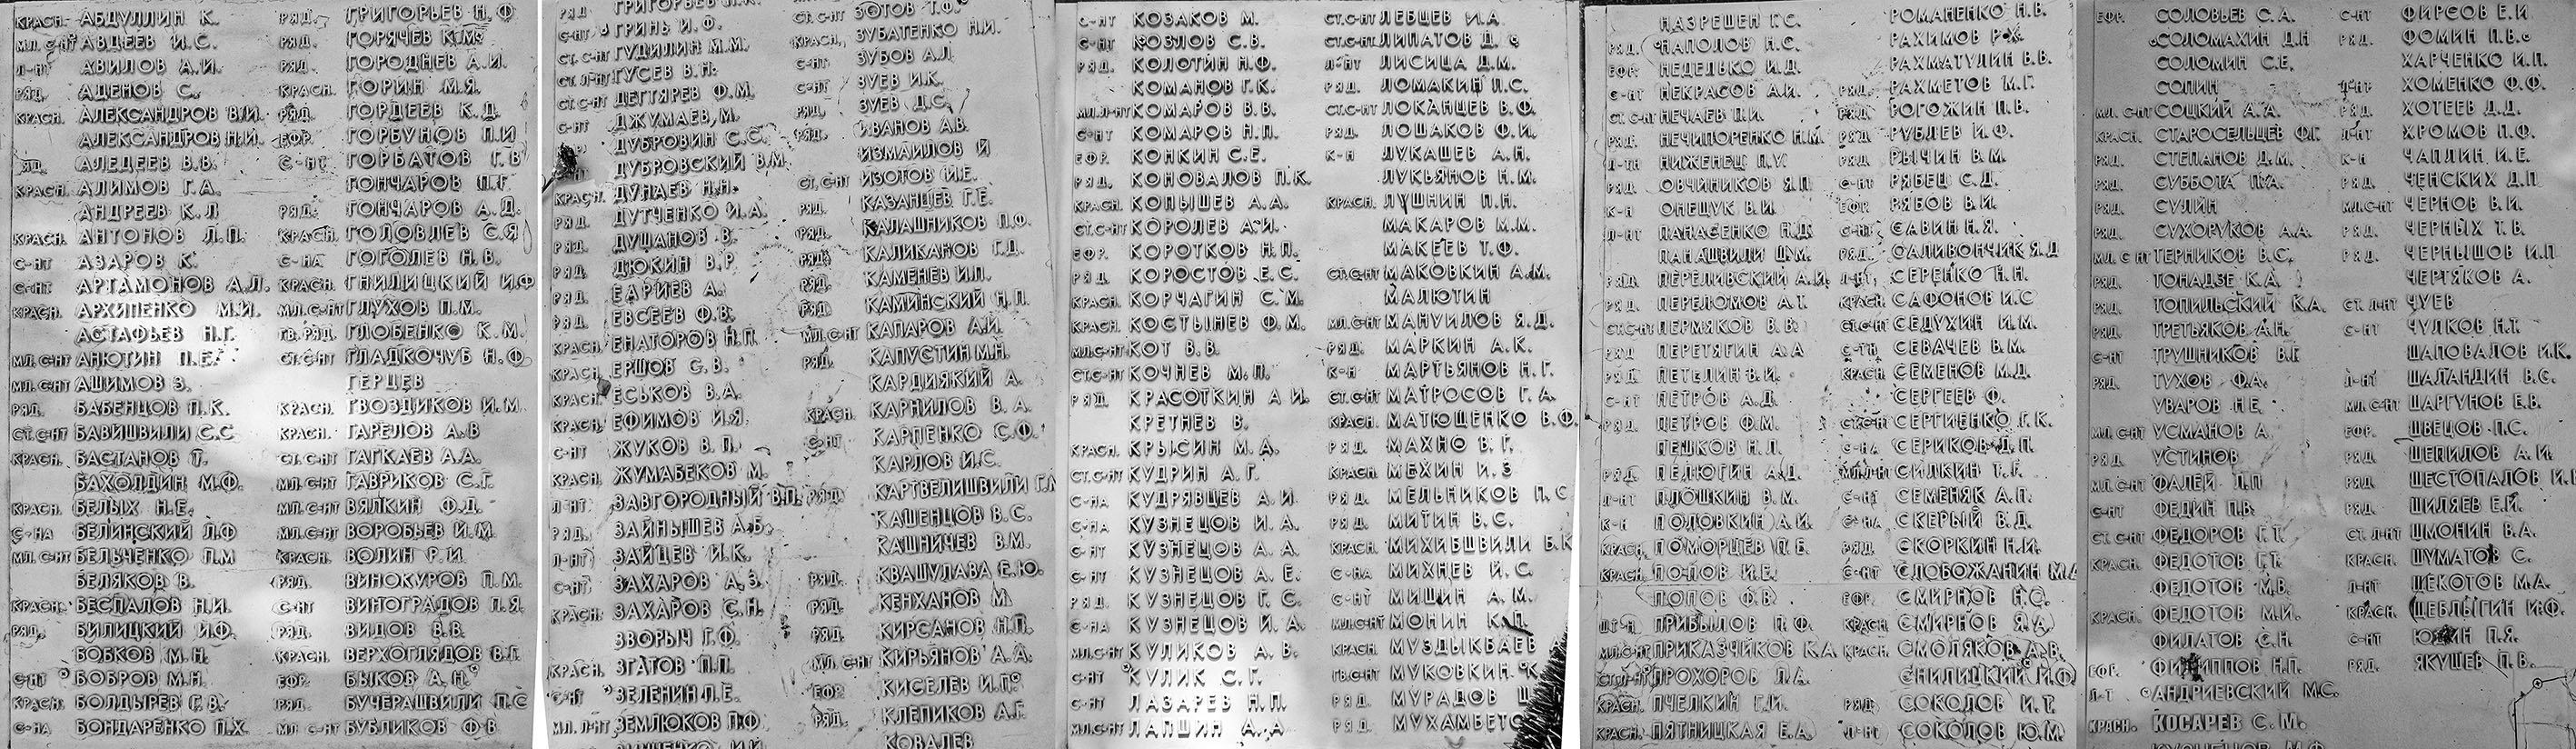 КРАСН. АБДУЛЛИН К.
МЛ.С-НТ АВДЕЕВ И.С.
Л-НТ АВИЛОВ А.И.
РЯД. АЦЕНОВ С.
КРАСН. АЛЕКСАНДРОВ В.И.
АЛЕКСАНДРОВ Н.И.
РЯД. АЛЕДЕЕВ В.В.
КРАСН. АЛИМОВ Г.А.
АНДРЕЕВ К.Л
КРАСН. АНТОНОВ Л.П.
С-НТ АЗАРОВ К.
С-НТ АРТАМОНОВ А.Л.
КРАСН. АРХИПЕНКО М.И.
АСТАФЬЕВ Н.Г.
МЛ.С-НТ АНЮТИН П.Е.
МЛ.С-НТ АШИМОВ З.
РЯД. БАБЕНЦОВ П.К.
СТ.С-НТ БАВИШВИЛИ С.С
КРАСН. БАСТАНОВ Т.
БАХОЛДИН М.Ф.
КРАСН. БЕЛЫХ Н.Е.
С-НА БЕЛИНСКИЙ Л.Ф
МЛ.С-НТ БЕЛЬЧЕНКО П.М
БЕЛЯКОВ В.
КРАСН. БЕСПАЛОВ Н.И.
РЯД. БИЛИЦКИЙ И.Ф.
БОБКОВ М.Н.
С-НТ БОБРОВ М.Н.
КРАСН. БОЛДЫРЕВ Г.В.
С-НА БОНДАРЕНКО П.Х.
РЯД. ГРИГОРЬЕВ Н.Ф
РЯД. ГОРЯЧЕВ К.М.
РЯД. ГОРОДНЕВ А.И.
КРАСН. ГОРИН М.Я.
РЯД. ГОРДЕЕВ К.Д.
ЕФР. ГОРБУНОВ П.И
С-НТ ГОРБАТОВ Г.В
ГОНЧАРОВ П.Г
РЯД. ГОНЧАРОВ А.Д.
КРАСН. ГОЛОВЛЕВ С.Я
С-НА ГОГОЛЕВ Н.В.
КРАСН. ГНИЛИЦКИЙ И.Ф
МЛ.С-НТ ГЛУХОВ П.М.
ГВ.РЯД. ГЛОБЕНКО К.М.
СТ.С-НТ ГЛАДКОЧУБ Н.Ф
ГЕРЦЕВ
КРАСН. ГВОЗДИКОВ И.М.
КРАСН. ГАРЕЛОВ А.В
СТ.С-НТ ГАГКАЕВ А.А.
МЛ.С-НТ ГАВРИКОВ С.Г.
МЛ.С-НТ ВЯЛКИН Ф.Д.
МЛ.С-НТ ВОРОБЬЕВ И.М.
КРАСН. ВОЛИН Р.И.
РЯД. ВИНОКУРОВ П.М.
С-НТ ВИНОГРАДОВ П.Я.
РЯД. ВИДОВ В.В.
КРАСН. ВЕРХОГЛЯДОВ В.Г.
ЕФР. БЫКОВ А.Н.
РЯД. БУЧЕРАШВИЛИ П.С
МЛ С-НТ БУБЛИКОВ Ф В
РЯД.
С-НТ ГРИНЬ И.Ф.
СТ.С-НТ ГУДИЛИН М.М.
СТ.Л-НТ ГУСЕВ В.Н.
СТ.С-НТ ДЕГТЯРЕВ Ф.М.
С-НТ ДЖУМАЕВ М.
ДУБРОВИН С.С.
ДУБРОВСКИЙ В.М.
КРАСН. ДУНАЕВ Н.Н.
РЯД. ДУТЧЕНКО И.А.
РЯД. ДУШАНОВ В.
РЯД. ДЮКИН В.Р
РЯД. ЕАРИЕВ А.
РЯД. ЕВСЕЕВ Ф.В.
КРАСН. ЕНАТОРОВ Н.П.
КРАСН. ЕРШОВ С.В.
КРАСН. ЕСЬКОВ В.А.
КРАСН. ЕФИМОВ И.Я.
С-НТ ЖУКОВ В.П.
КРАСН. ЖУМАБЕКОВ М.
Л-НТ ЗАВГОРОДНЫЙ В.П.
РЯД. ЗАЙНЫШЕВ А.Б.
Л-НТ ЗАЙЦЕВ И.К.
С-НТ ЗАХАРОВ А.З.
КРАСН. ЗАХАРОВ С.Н.
ЗВОРЫЧ Г.Ф.
КРАСН. ЗГАТОВ П.П.
С-НТ ЗЕЛЕНИН П.Е.
МЛ.Л-НТ ЗЕМЛЮКОВ П.Ф.
СТ.С-НТ ЗОТОВ Т.Ф.
КРАСН. ЗУБАТЕНКО Н.И.
С-НТ ЗУБОВ А.Л.
С-НТ ЗУЕВ И.К.
РЯД. ЗУЕВ Д.С.
РЯД. ИВАНОВ А.В.
ИЗМАИЛОВ И
СТ.С-НТ ИЗОТОВ И.Е.
РЯД. КАЗАНЦЕВ Г.Е.
РЯД. КАЛАШНИКОВ П.Ф.
РЯД. КАЛИКАНОВ Г.Д.
РЯД. КАМЕНЕВ И.П.
РЯД. КАМИНСКИЙ Н.П.
МЛ.С-НТ КАПАРОВ А.И.
РЯД. КАПУСТИН М.Н.
КАРДИЯКИЙ А.
КРАСН. КАРНИЛОВ В.А.
С-НТ КАРПЕНКО С.Ф.
КАРЛОВ И.С.
РЯД. КАРТВЕЛИШВИЛИ Г.
КАШЕНЦОВ В.С.
КАШНИЧЕВ В.М.
РЯД. КВАШУЛАВА Е.Ю.
РЯД. КЕНХАНОВ М.
РЯД. КИРСАНОВ Н.П.
МЛ.С-НТ КИРЬЯНОВ А.А.
ЕФР. КИСЕЛЕВ И.П.
РЯД. КЛЕПИКОВ А.Г.
КОВАЛЕВ
С-НТ КОЗАКОВ М.
С-НТ КОЗЛОВ С.В.
РЯД. КОЛОТИН Н.Ф.
КОМАНОВ Г.К.
МЛ.Л-НТ КОМАРОВ В.В.
С-НТ КОМАРОВ Н.П.
ЕФР. КОНКИН С.Е.
РЯД. КОНОВАЛОВ П.К.
КРАСН. КОПЫШЕВ А.А.
СТ.С-НТ КОРОЛЕВ А.И.
ЕФР. КОРОТКОВ Н.П.
РЯД. КОРОСТОВ Е.С.
КРАСН. КОРЧАГИН С.М.
КРАСН. КОСТЫНЕВ Ф.М.
МЛ.С-НТ КОТ В.В.
СТ.С-НТ КОЧНЕВ М.П.
РЯД. КРАСОТКИН А.И.
КРЕТНЕВ В.
КРАСН. КРЫСИН М.А.
СТ.С-НТ КУДРИН А.Г.
С-НА КУДРЯВЦЕВ А.И.
С-НА КУЗНЕЦОВ И.А.
С-НТ КУЗНЕЦОВ А.А.
С-НТ КУЗНЕЦОВ А.Е.
РЯД. КУЗНЕЦОВ Г.С.
С-НА КУЗНЕЦОВ И.А.
МЛ.С-НТ КУЛИКОВ А.В.
С-НТ КУЛИК С.Г.
С-НТ ЛАЗАРЕВ Н.П.
МЛ.С-НТ ЛАПШИН А.А
СТ.С-НТ ЛЕБЦЕВ И.А
СТ.С-НТ ЛИПАТОВ Д.
Л-НТ ЛИСИЦА Д.М.
РЯД. ЛОМАКИН П.С.
СТ.С-НТ ЛОКАНЦЕВ В.Ф.
РЯД. ЛОШАКОВ Ф.И.
К-Н ЛУКАШЕВ А.Н.
ЛУКЬЯНОВ Н.М.
КРАСН. ЛУШНИН П.Н.
МАКАРОВ М.М.
МАКЕЕВ Т.Ф.
СТ.С-НТ МАКОВКИН А.М.
МАЛЮТИН
МЛ.С-НТ МАНУИЛОВ Я.Д.
РЯД. МАРКИН А.К.
К-Н МАРТЬЯНОВ Н.Г.
СТ.С-НТ МАТРОСОВ Г.А.
КРАСН. МАТЮЩЕНКО В.Ф.
РЯД. МАХНО В.Г.
КРАСН. МЕХИН И.З
РЯД. МЕЛЬНИКОВ П.С
РЯД. МИТИН В.С.
КРАСН. МИХИБШВИЛИ Б.К
С-НА МИХНЕВ И.С.
С-НТ МИШИН А.М.
МЛ.С-НТ МОНИН К.П.
КРАСН. МУЗДЫКБАЕВ
ГВ.С-НТ МУКОВКИН К.
РЯД. МУРАДОВ Ш
РЯД. МУХАМБЕТО
НАЗРЕШЕН Г.С.
РЯД. НАПОЛОВ Н.С.
ЕФР. НЕДЕЛЬКО И.Д.
С-НТ НЕКРАСОВ А.И.
СТ.С-НТ НЕЧАЕВ П.И.
РЯД. НЕЧИПОРЕНКО Н.М.
Л-ТН НИЖЕНЕЦ П.У.
РЯД. ОВЧИНИКОВ Я.П
К-Н ОНЕЩУК В.И.
Л-НТ ПАНАСЕНКО Н.Д.
ПАНАШВИЛИ Ш.М.
РЯД. ПЕРЕЛИВСКИЙ А.И.
РЯД. ПЕРЕЛОМОВ А.Т.
СТ.С-НТ ПЕРМЯКОВ В.В.
РЯД. ПЕРЕТЯГИН А.А
РЯД. ПЕТЕЛИН В.И.
С-НТ ПЕТРОВ А.Д.
РЯД. ПЕТРОВ Ф.М.
ПЕШКОВ Н.Л.
РЯД. ПЕЛЮГИН А.Д.
Л-НТ ПЛОШКИН В.М.
К-Н ПОЛОВКИН А.И.
КРАСН. ПОМОРЦЕВ П.Б.
КРАСН. ПОПОВ И.Е.
ПОПОВ Ф.В.
ПРИБЫЛОВ П.Ф.
МЛ.С-НТ ПРИКАЗЧИКОВ К.А.
СТ.Л-НТ ПРОХОРОВ Л.А.
КРАСН. ПЧЕЛКИН Г.И.
КРАСН. ПЯТНИЦКАЯ Е.А.
РОМАНЕНКО Н.В.
РАХИМОВ Р.Х.
РАХМАТУЛИН В.В.
РЯД. РАХМЕТОВ М.Г.
РЯД. РОГОЖИН П.В.
РЯД. РУБЛЕВ И.Ф.
РЯД. РЫЧИН В.М.
С-НТ РЯБЕЦ С.Д.
ЕФР. РЯБОВ В.И.
С-НТ САВИН Н.Я.
РЯД. САЛИВОНЧИК Я.Д
Л-НТ СЕРЕНКО Н.Н.
КРАСН. САФОНОВ И.С
СТ.С-НТ СЕДУХИН И.М.
С-ТН СЕВАЧЕВ В.М.
КРАСН. СЕМЕНОВ М.Д.
СЕРГЕЕВ Ф.
СТ.С-НТ СЕРГИЕНКО Г.К.
С-НА СЕРИКОВ Д.П.
МЛ.Л-НТ СИЛКИН Т.Г.
С-НТ СЕМЕНЯК А.П.
С-НА СКЕРЫЙ В.Д.
РЯД. СКОРКИН Н.И.
С-НТ СЛОБОЖАНИН М.А
ЕФР. СМИРНОВ Н.С.
КРАСН. СМИРНОВ Я.А.
КРАСН. СМОТЯКОВ А.В.
СНИЛИЦКИЙ И.Ф.
РЯД. СОКОЛОВ И.Т.
Л-НТ СОКОЛОВ Ю.М.
ЕФР. СОЛОВЬЕВ С.А.
СОЛОМАХИН Д.Н
СОЛОМИН С.Е.
СОПИН
МЛ.С-НТ СОЦКИЙ А.А.
КРАСН. СТАРОСЕЛЬЦЕВ Ф.Г.
РЯД. СТЕПАНОВ Д.М.
РЯД. СУББОТА П.А.
РЯД. СУЛИН
РЯД. СУХОРУКОВ А.А.
МЛ.С-НТ ТЕРНИКОВ В.С.
РЯД. ТОНАДЗЕ К.А.
РЯД. ТОПИЛЬСКИЙ К.А.
РЯД. ТРЕТЬЯКОВ А.Н.
С-НТ ТРУШНИКОВ В.Г.
РЯД. ТУХОВ Ф.А.
УВАРОВ Н.Е.
МЛ.С-НТ УСМАНОВ А.
РЯД. УСТИНОВ
МЛ.С-НТ ФАЛЕЙ Л.П
С-НТ ФЕДИН П.В.
СТ.С-НТ ФЕДОРОВ Г.Т.
КРАСН. ФЕДОТОВ Г.Т.
ФЕДОТОВ М.В.
КРАСН. ФЕДОТОВ М.И.
ФИЛАТОВ С.Н.
ЕФР. ФИЛИППОВ Н.П.
Л-Т АНДРИЕВСКИЙ М.С.
КРАСН. КОСАРЕВ С.М.
С-НТ ФИРСОВ Е.И
РЯД. ФОМИН П.В.
ХАРЧЕНКО И.П.
ХОМЕНКО Ф.Ф.
РЯД. ХОТЕЕВ Д.Д.
Л-НТ ХРОМОВ П.Ф.
К-Н ЧАПЛИН И.Е.
РЯД. ЧЕНСКИХ Д.П
МЛ.С-НТ ЧЕРНОВ В.И.
РЯД. ЧЕРНЫХ Т.В.
РЯД. ЧЕРНЫШОВ И.П
ЧЕРТЯКОВ А.
СТ.Л-НТ ЧУЕВ
С-НТ ЧУЛКОВ Н.Т.
ШАПОВАЛОВ И.К.
Л-НТ ШАЛАНДИН В.С.
МЛ.С-НТ ШАРГУНОВ Е.В.
ЕФР. ШВЕЦОВ П.С.
РЯД. ШЕПИЛОВ А.И.
РЯД. ШЕСТОПАЛОВ И.
РЯД. ШИЛЯЕВ Е.Й.
СТ.Л-НТ ШМОНИН В.А.
КРАСН. ШУМАТОВ С.
Л-НТ ЩЕКОТОВ М.А.
КРАСН. ЩЕБЛЫГИН И.Ф.
С-НТ П.Я.
РЯД. ЯКУШЕВ П.В.